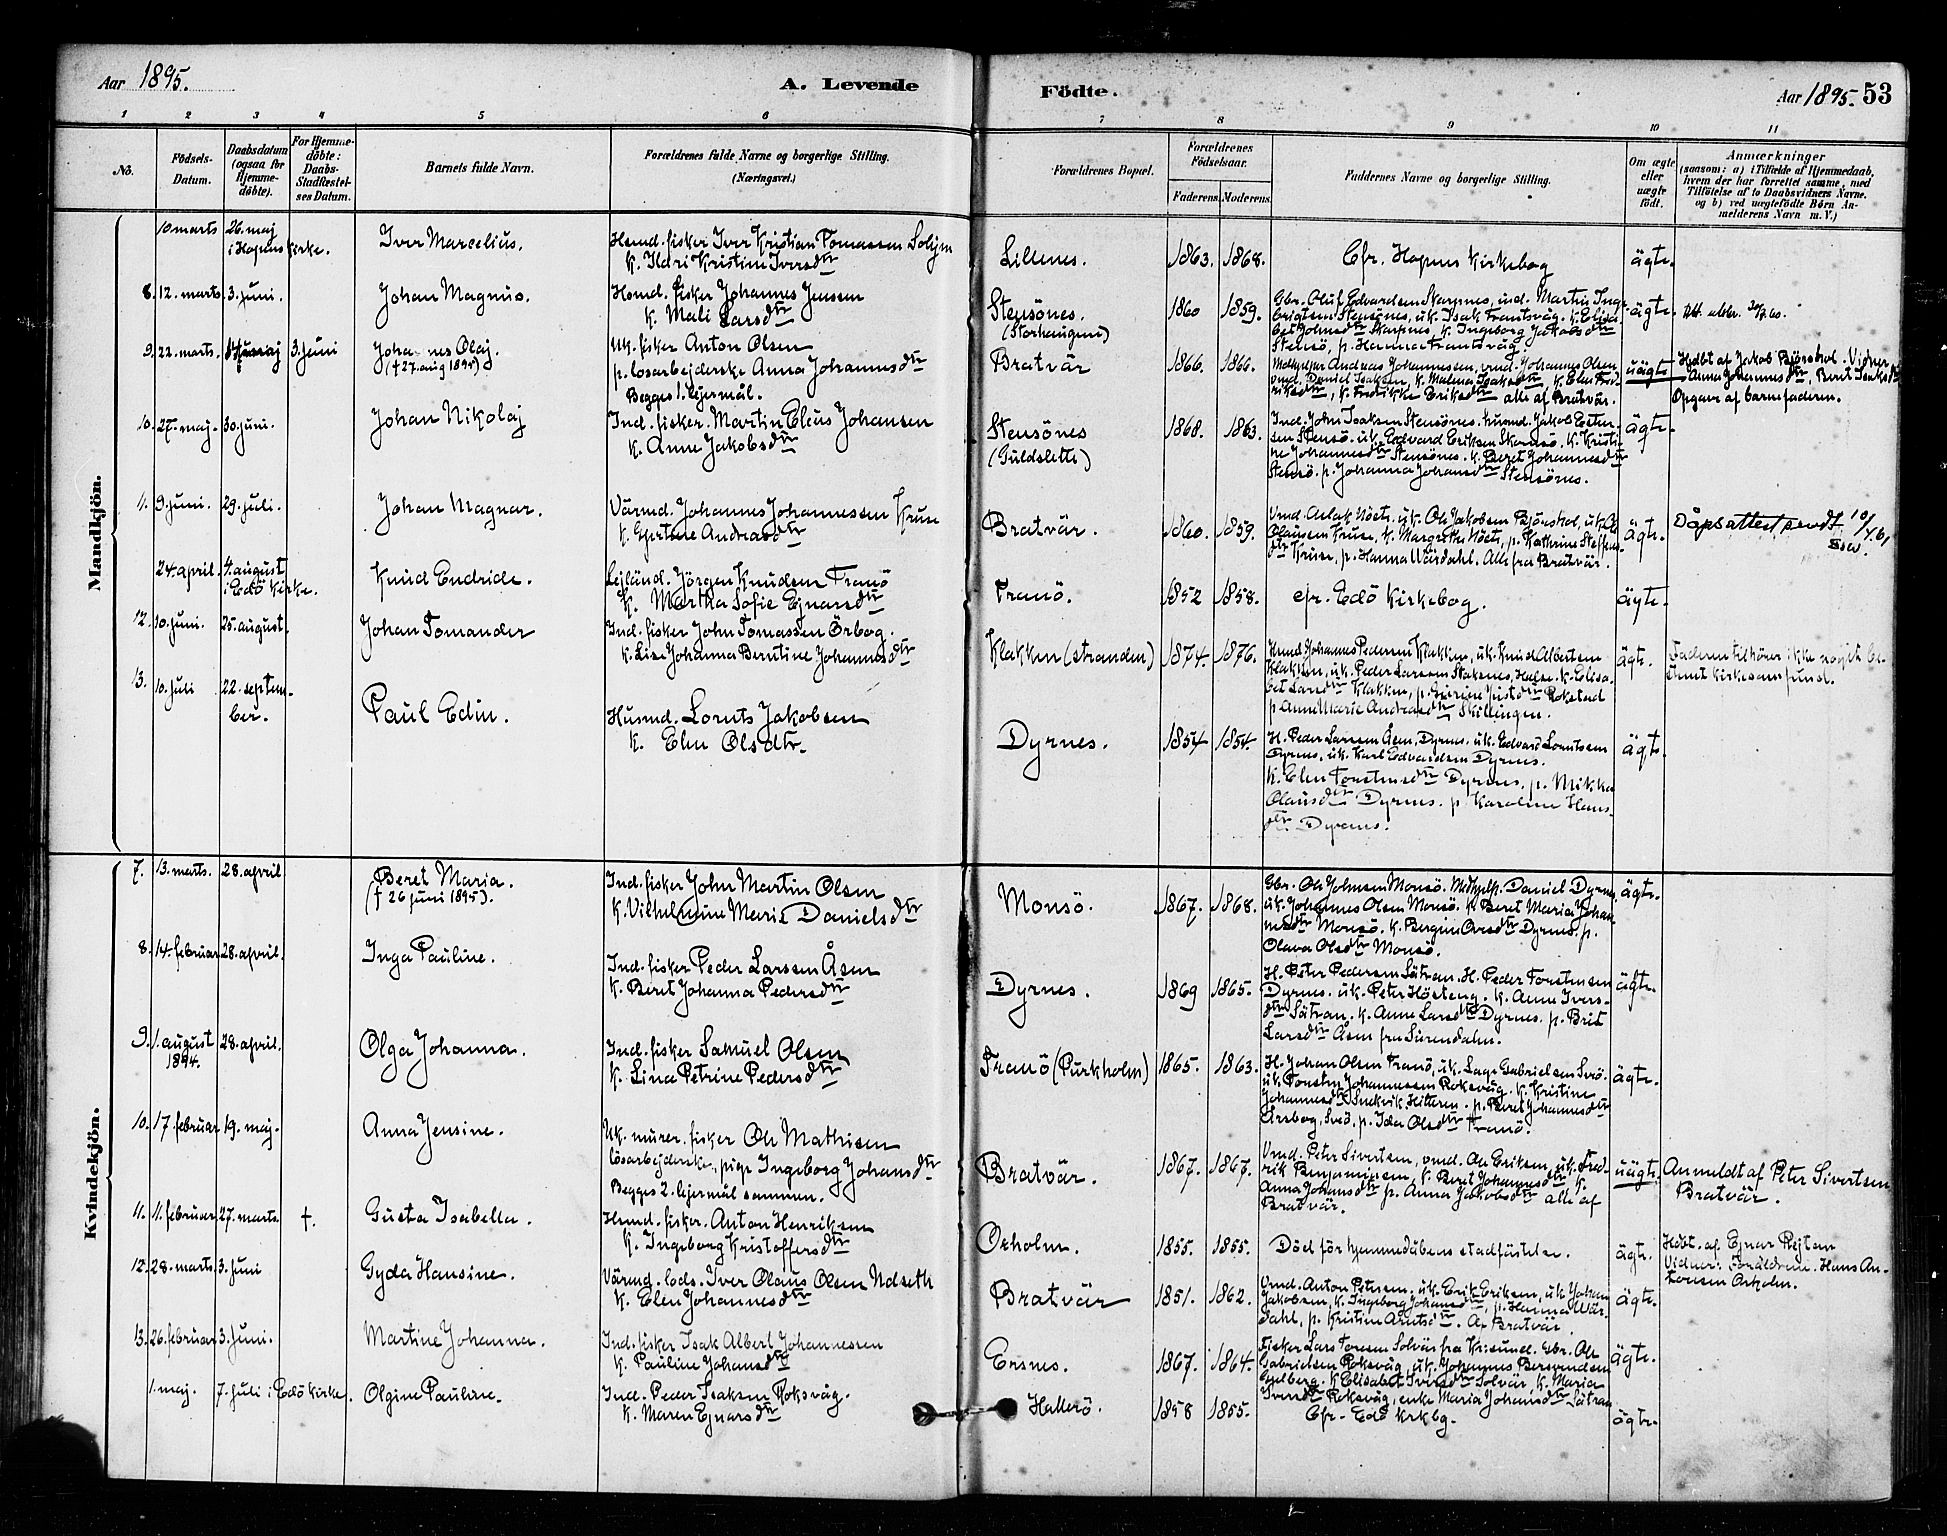 Aar 1895.
A. Levende
Födte.
Aar 1895. 53
1 2 3 4 5 6 7 8 9 10 11
No.
Födsels-Datum.
Daabsdatum (ogsaa for Hjemme-döbte).
For Hjemme-döbte: Daabs-Stadfæstel-ses Datum.
Barnets fulde Navn.
Forældrenes fulde Navne og borgerlige Stilling. (Næringsvei.)
Forældrenes Bopæl.
Forældrenes Födselsaar.
Faderens. Moderens.
Faddernes Navne og borgerlige Stilling.
Om ægte eller uægte födt.
Anmærkninger
(saasom: a) i Tilfælde af Hjemmedaab,
hvem der har forrettet samme, med
Tilföielse af to Daabsvidners Navne,
og b) ved uægtefödte Börn An-
melderens Navn m. V.)
Mandkjön.
10 marts 26. maj i Hopens kirke. Iver Marcelius.
Husmd. fisker Iver Kristian Tomassen
K. Kari Kristine Iversdtr
Lillenes. 1863. 1868. Cfr. Hopens kirkebog ägte.
8. 12. marts. 3. juni. Johan Magnus.
Husmd. fisker Johannes Jenssen
K. Mali Larsdtr
Stensönes. (Storhaugen) 1860 1859.
Gbr. Oluf Edvardsen Skarpnes, ind. Martin
Stensönes, uk. Isak Frantsvåg. K. Elisa-
bet Johnsdtr Skarpnes, K. Ingeborg Jakobsdtr
Stensö, p. Hanna Frantsvåg.
ägte.
9. 22. marts. 3. juni Johannes Olaj. († 27. aug 1895).
Uk. fisker Anton Olsen
p. lösarbejderske Anna Johannesdtr
Begges 1. lejermål.
Bratvär 1866. 1866.
Andreas Johannessen, vmd. Johannes Olsen,
vmd. Daniel Isaksen, K. Malena Isaksdtr, K. Elen Fred-
riksdtr, K. Fredrikke Eriksdtr alle af Bratvär.
uägte
Hjdbt af Jakob Björnskol. Vidner
Anna Johannesdtr, Beret Isaksdtr
Opgave af barnefaderen.
10. 27. maj. 30. juni. Johan Nikolaj
Ind. fisker. Martin Eleus Johansen
K. Anne Jakobsdtr
Stensönes (Guldslette) 1868. 1863.
Ind. John Isaksen Stensönes. husmd. Jakob
Stensö. uk. Edvard Eriksen K. Kristi-
ne Johannesdtr Stensönes. K. Beret Johannesdtr
Stensö. p. Johanna Johansdtr Stensönes.
ägte.
11. 9. juni. 29. juli. Johan Magnar.
Värmd. Johannes Johannessen Kruse
K. Gjertine Andreasdtr
Bratvär. 1860. 1859.
Vmd. Aslak Nöst, uk. Ole Jakobsen Björnskol, uk.
Olausen Kruse, K. Margrethe Nöst, p. Kathrine Steffens-
dtr Kruse, p. Hanna Värdahl. Alle fra Bratvär.
ägte.
Dåpsattest sendt 10/4.61
24. april. 4. august i Edö kirke. Knud Endride.
Lejländ. Jörgen Knudsen Tranö
K. Martha Sofie Ejnarsdtr
Tranö. 1852 1858. cfr. Edö kirkebog. ägte.
12. 10. juni. 25. august. Johan Tomander
Ind. fisker John Tomassen Örbog.
K. Lise Johanna Berntine Johannesdtr
Klakken (stranden) 1874. 1876.
Husmd Johannes Pedersen Klakken, uk. Knud Albertsen
Klakken, uk. Peder Larssen Staksnes, Halse. K. Elisa-
bet Larsdtr Klakken, p. Rokstad
p. Anne Marie Andreasdtr Skillingen.
ägte.
Faderen tilhörer ikke noget be-
stemt kirkesamfund.
13. 10. juli 22. septem-ber. Paul Edin.
Husmd. Lornts Jakobsen
K. Elen Olsdtr.
Dyrnes. 1854 1854.
H. Peder Larssen Åsen, Dyrnes. uk. Edvard Lorntssen
Dyrnes, uk. Karl Edvardsen Dyrnes.
K. Elen Torstensdtr Dyrnes. p. Mikka
Olausdtr Dyrnes. p. Karoline Hans-
dtr Dyrnes.
ägte.
Kvindekjön.
7. 13. marts. 28. april Beret Maria. († 26 juni 1895).
Ind. fisker John Martin Olsen
K. Vilhelmine Marie Danielsdtr
Monsö. 1867. 1868.
Gbr. Ole Johnsen Monsö. Medhjelp. Daniel Dyrnes,
uk. Johannes Olsen Monsö. K. Beret Maria Johan-
nesdtr Monsö. K. Bergine Dyrnes. p.
Olava Olsdtr Monsö.
ägte.
8. 14. februar 28. april. Inga Pauline.
Ind. fisker Peder Larssen Åsen
K. Beret Johanna Pedersdtr
Dyrnes. 1869 1865.
H. Peter Pedersen Sätran. H. Peder Torstensen
Dyrnes. uk. Peter Hösteng. K. Anne Ivers-
dtr Sätran. K. Anne Larsdtr Dyrnes. p. Brit
Larsdtr Åsen fra Surendalen.
ägte.
9. 1. august 1894. 28. april. Olga Johanna.
Ind. fisker Samuel Olsen
K. Lina Petrine Pedersdtr
Tranö (Purkholm) 1865. 1863.
H. Johan Olsen Tranö, uk. Lage Gabrielsen Sveö.
uk. Torsten Johannessen Roksvåg. K. Kristine
Johannesdtr Snekvik. Hitteren. p. Beret Johannesdtr
Årsbog, Sveö, p. Ida Olsdtr Tranö.
ägte.
10. 17. februar 19. maj. Anna Jensine.
Uk. murer. fisker Ole Mathisen
lösarbejderske, pige Ingeborg Johansdtr
Begges 2. lejermål sammen.
Bratvär. 1867. 1867.
Vmd. Peter Sivertsen, vmd. Ole Eriksen, uk. Fred-
rik Benjaminsen, K. Beret Johannesdtr K.
Anna Johansdtr p. Anna Jakobsdtr alle af
Bratvär.
uägte.
Anmeldt af Peter Sivertsen
Bratvär.
11. 11. februar 27. marts. †. Gusta Isabella.
Husmd. fisker. Anton Henriksen
K. Ingeborg Kristoffersdtr
Oxholm. 1855. 1855. Död för hjemmedåbens stadfästelse. ägte.
Hjdbt. af Ejnar Rejtan
Vidner: Foräldrene. Hans An-
tonsen Oxholm.
12. 28. marts. 3. juni Gyda Hansine.
Värmd. lods. Iver Olaus Olsen Udseth
K. Elen Johannesdtr
Bratvär 1851. 1862.
Vmd. Anton Petersen. uk. Erik Eriksen, uk. Johan
Jakobsen, K. Ingeborg Johansdtr, p. Hanna Vär-
dahl, p. Kristine Arntsdtr. Af Bratvär.
ägte.
13. 26. februar 3. juni. Martine Johanna.
Ind. fisker Isak Albert Johannessen
K. Pauline Johansdtr
Ersnes. 1867. 1864.
Fisker Lars Toresen Solvär fra Krisund. Gbr. Ole
Gabrielsen Roksvåg, uk. Johannes Bersvendsen
Gulberg. K. Elisabet Iversdtr Solvär K. Maria
Iversdtr Roksvåg, enke Maria Johansdtr Sätran
ägte.
1. maj. 7. juli i Edö kirke. Olgine Pauline.
Ind. Peder Isaksen Roksvåg.
K. Maren Ejnarsdtr
Hallerö. 1858 1855. Cfr. Edö krkbg. ägte.